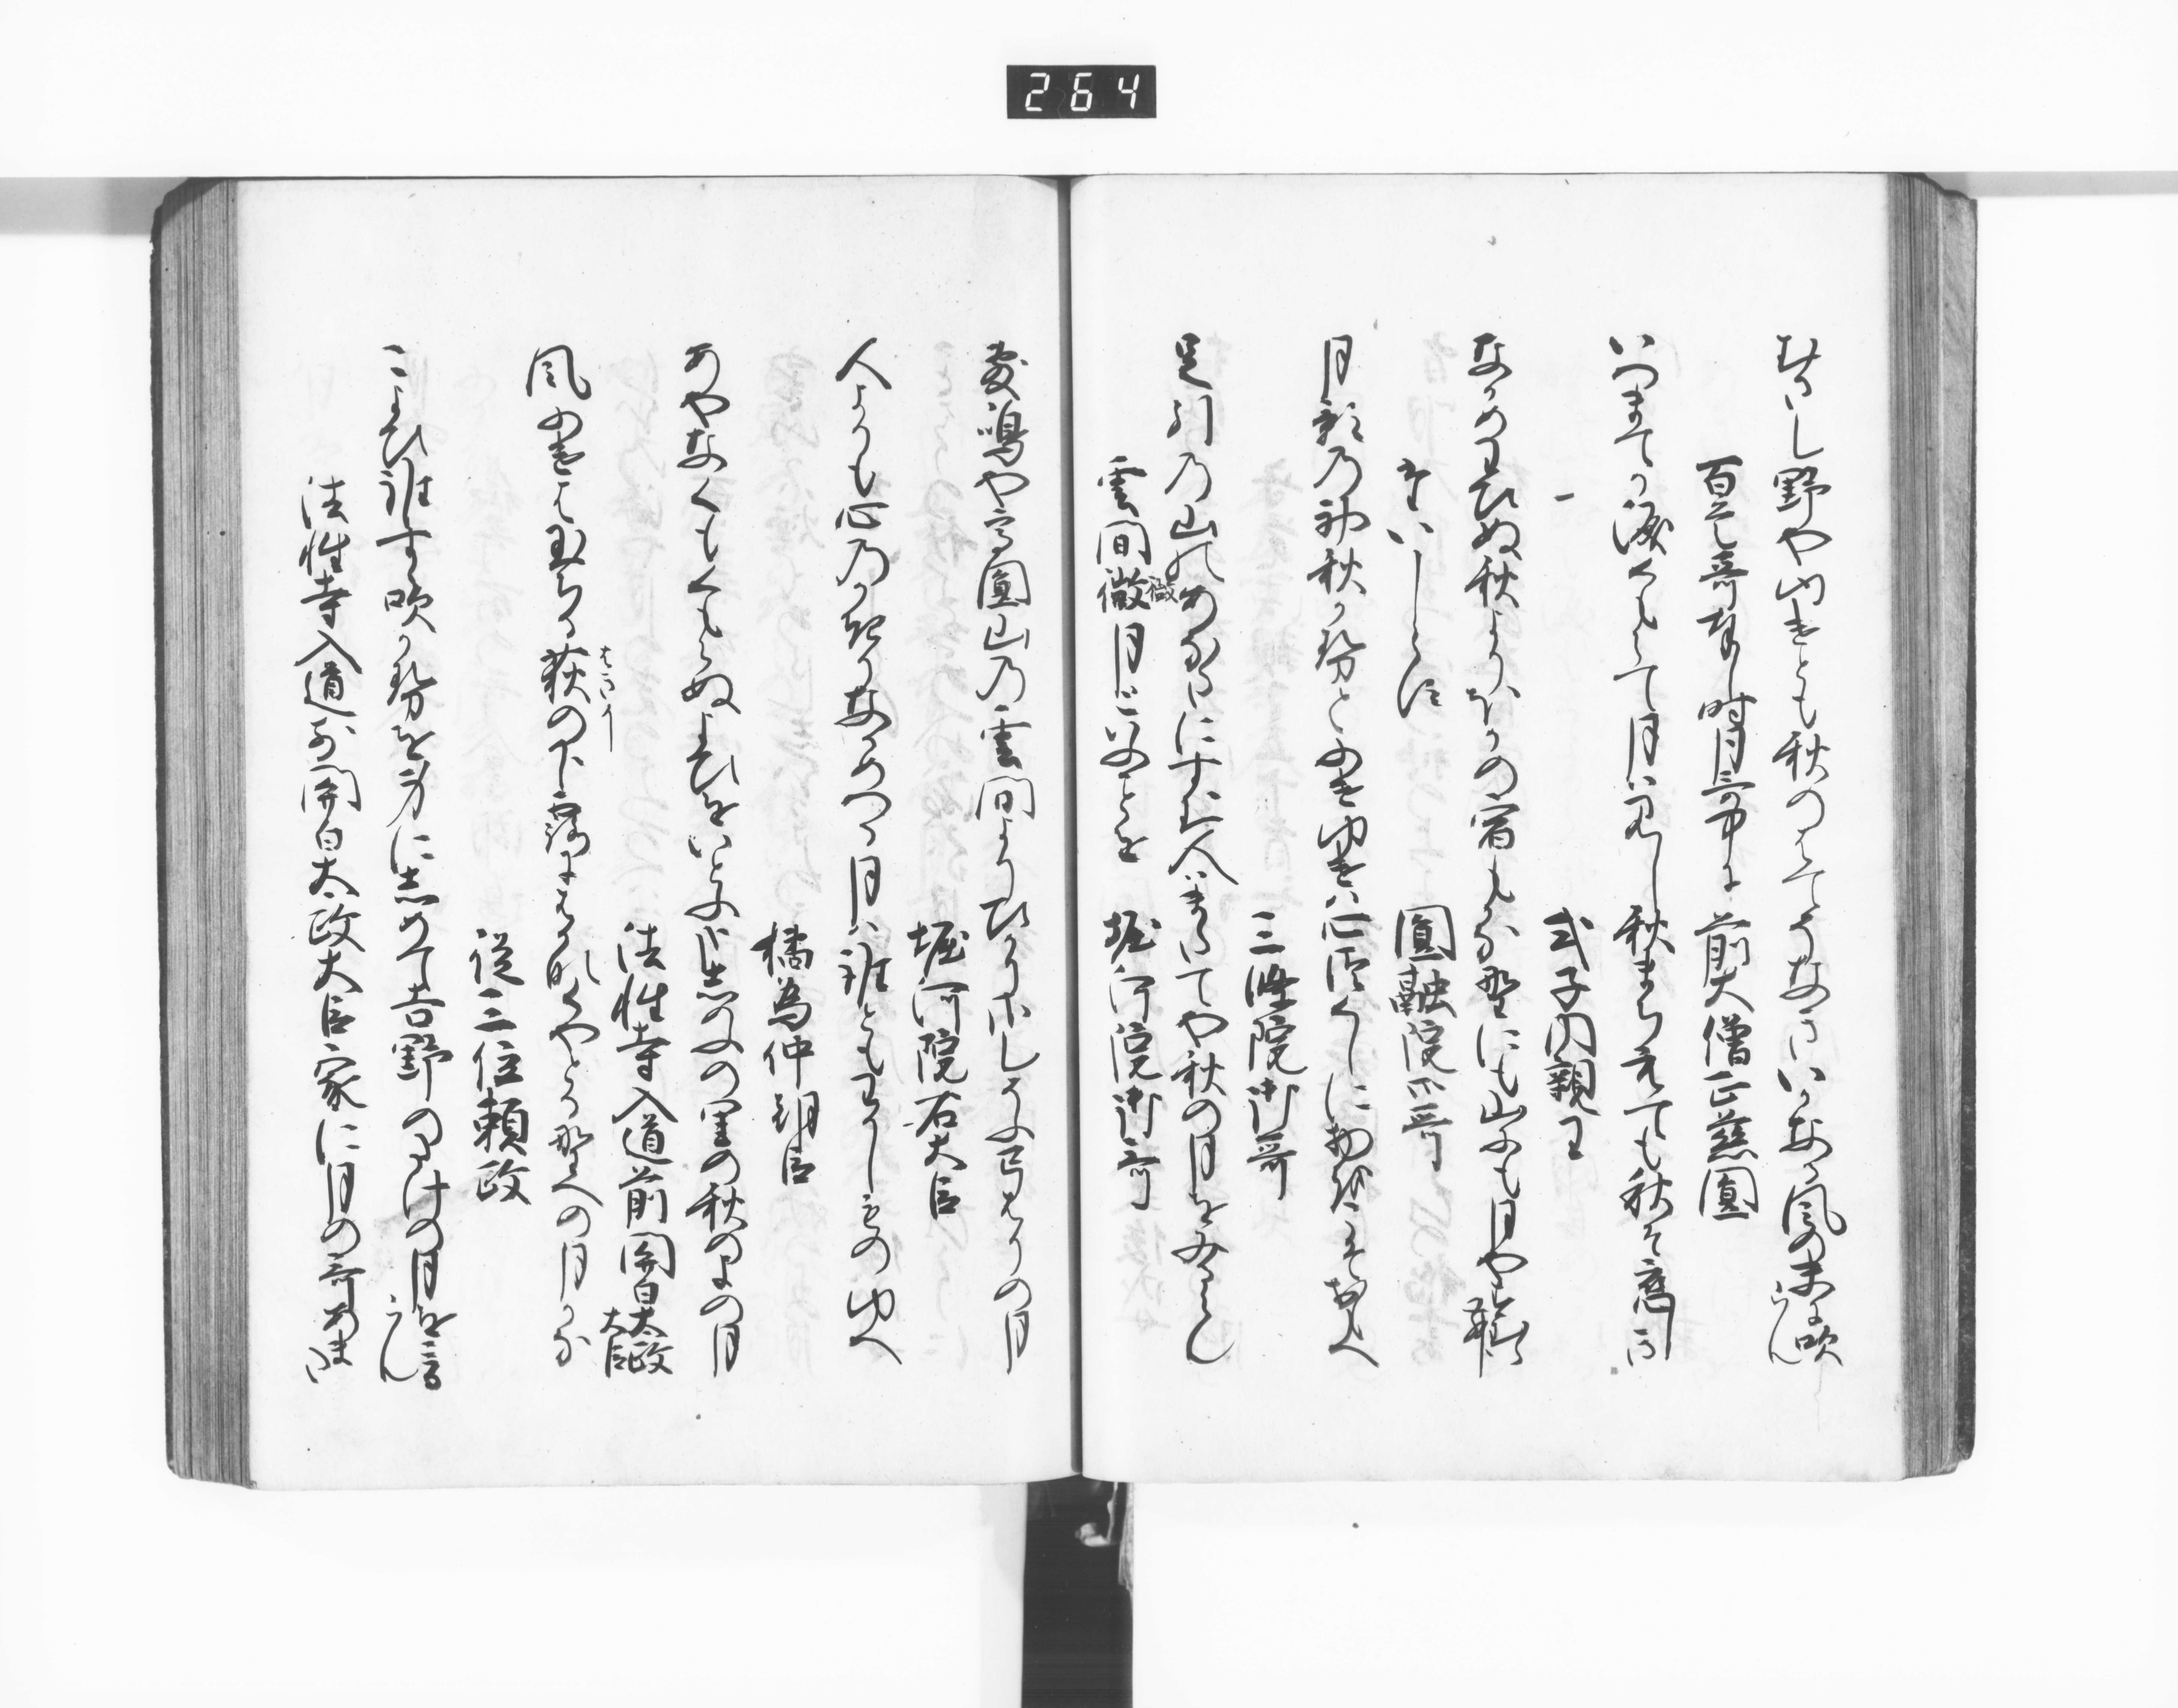 264
むさし野やゆけとも秋のはてそなきいかなる風の末に吹
らん
百首哥奉し時月哥中に　前大僧正慈圓
いつまてか涙くもらて月は見し秋まちえても秋そ恋しき
式子内親王
なかめわひぬ秋よりほかの宿もかな野にも山にも月やすむらん
たいしらす
圓融院御哥
月影の初秋かせとふけゆけは心つくしに物をこそおもへ
三條院御哥
足引の山のあなたにすむ人はまたてや秋の月をみるらし
雲間微月といふことを　堀河院御哥
微
敷嶋や高圓山の雲間よりひかりさしそふ弓はりの月
堀河院右大臣
人よりも心のかきりなかめつる月は誰ともわかしものゆへ
橘為仲朝臣
あやなくもくもらぬよひをいとふ哉しのふの里の秋のよの月
法性寺入道前関白太政
大臣
風ふけは玉ちる萩の下露にはかなくやとる野への月かな
従三位頼政
こよひ誰すゝ吹かせを身にしめて吉野のたけの月を見る
らん
法性寺入道前関白太政大臣家に月の哥あま